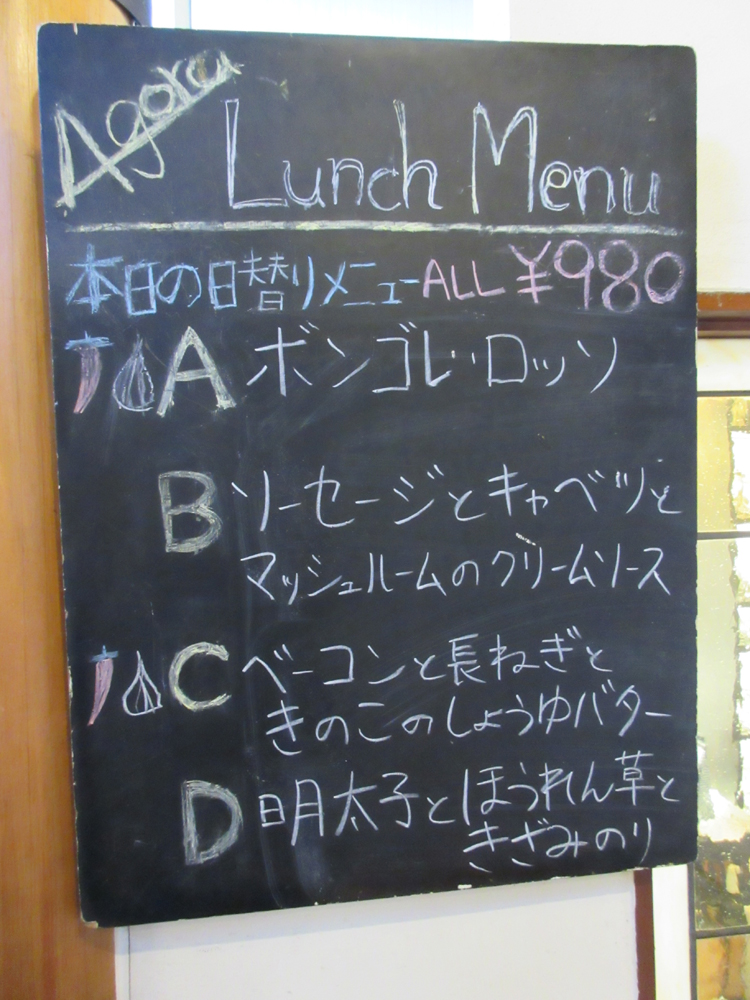 Agora
Lunch Menu
本日の日替りメニューALL ¥980
A ボンゴレ・ロッソ
B ソーセージとキャベツと
マッシュルームのクリームソース
C ベーコンと長ねぎと
きのこのしょうゆバター
D 明太子とほうれん草と
きざみのり